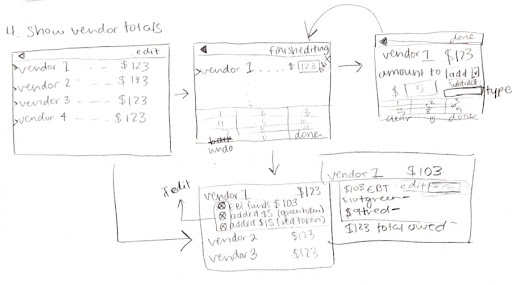 4. Show vendor totals
edit
vendor 1 - - - $123
vendor 2 - - $123
vendor 3 - - - $123
vendor 4 - - $123
finish editing
vendor 1 . . . . $ 123
undo
done
done
vendor 1 $123
amount to add
subtract
$ 5
type
clear 0 done
edit
vendor 1 $123
EBT funds $103
added $5 (green token)
added $15 (red token)
vendor 2 $123
vendor 3 $123
vendor 1 $103
$103 EBT edit
$123 total owed